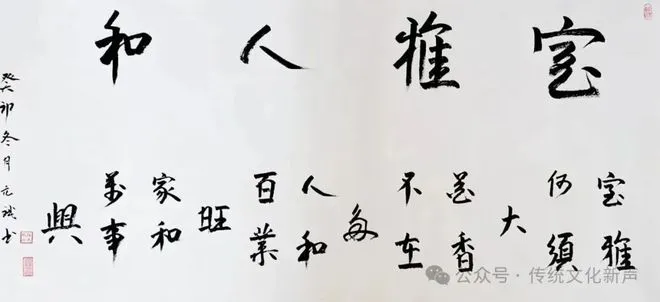 室雅人和
室雅
何須
大
花香
不在
多
人和
百業
旺
家和
萬事
興
癸卯冬月元书
公众号·传统文化新声